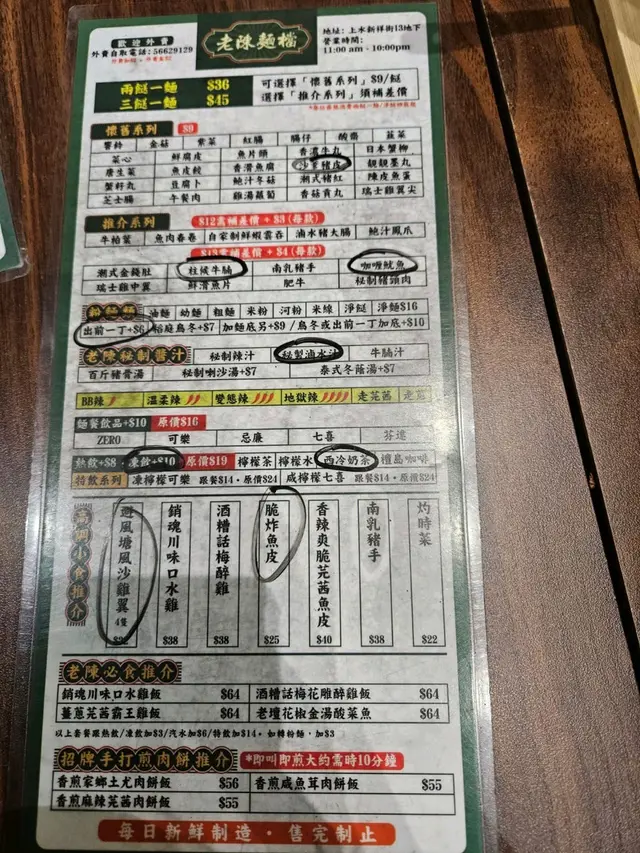 歡迎外賣
外賣自取電話:56629129
老陳麵檔
地址: 上水新祥街13地下
營業時間:
11:00 am - 10:00pm
兩餸一麵 $36
三餸一麵 $45
可選擇「懷舊系列」$9/餸
選擇「推介系列」須補差價
懷舊系列 $9
響鈴 金菇 紫菜 紅腸 腸仔 酸齋 韮菜
菜心 鮮腐皮 魚片頭 香濃牛丸 日本蟹柳
唐生菜 魚皮餃 香滑魚腐 沙爹豬皮 靚靚墨丸
蟹籽丸 豆腐卜 鮑汁冬菇 潮式豬紅 陳皮魚蛋
芝士腸 午餐肉 雞湯蘿蔔 香菇貢丸 瑞士雞翼尖
推介系列 $12需補差價 + $3 (每款)
牛柏葉 魚肉春卷 自家制鮮蝦雲吞 滷水豬大腸 鮑汁鳳爪
$13需補差價 + $4 (每款)
潮式金錢肚 柱候牛腩 南乳豬手 咖喱魷魚
瑞士雞中翼 鮮滑魚片 肥牛 秘制豬頭肉
油麵 幼麵 粗麵 米粉 河粉 米線 淨餸 淨麵$16
出前一丁+$6 稻庭烏冬+$7 加麵底另+$9 /烏冬或出前一丁加底+$10
老陳秘制醬汁 秘制辣汁 秘製滷水汁 牛腩汁
百斤豬骨湯 秘制喇沙湯+$7 泰式冬蔭湯+$7
BB辣 溫柔辣 變態辣 地獄辣 走芫茜 走蔥
麵餐飲品+$10 原價$16
ZERO 可樂 忌廉 七喜 芬達
熱飲+$8 凍飲+$10 原價$19 檸檬茶 檸檬水 西冷奶茶 檀島咖啡
特飲系列 凍檸檬可樂 跟餐$14 · 原價$24 咸檸檬七喜 跟餐$14 · 原價$24
小食推介
避風塘風沙雞翼 4隻
銷魂川味口水雞 $38
酒糟話梅醉雞 $38
脆炸魚皮 $25
香辣爽脆芫茜魚皮 $40
南乳豬手 $38
灼時菜 $22
老陳必食推介
銷魂川味口水雞飯 $64 酒糟話梅花雕醉雞飯 $64
薑蔥芫茜霸王雞飯 $64 老壇花椒金湯酸菜魚 $64
以上套餐跟熱飲/凍飲加$3/汽水加$6/特飲加$14。如轉粉麵，加$3
招牌手打煎肉餅推介 *即叫即煎大約需時10分鐘
香煎家鄉土尤肉餅飯 $56 香煎咸魚茸肉餅飯 $55
香煎麻辣芫茜肉餅飯 $55
每日新鮮制造 · 售完制止